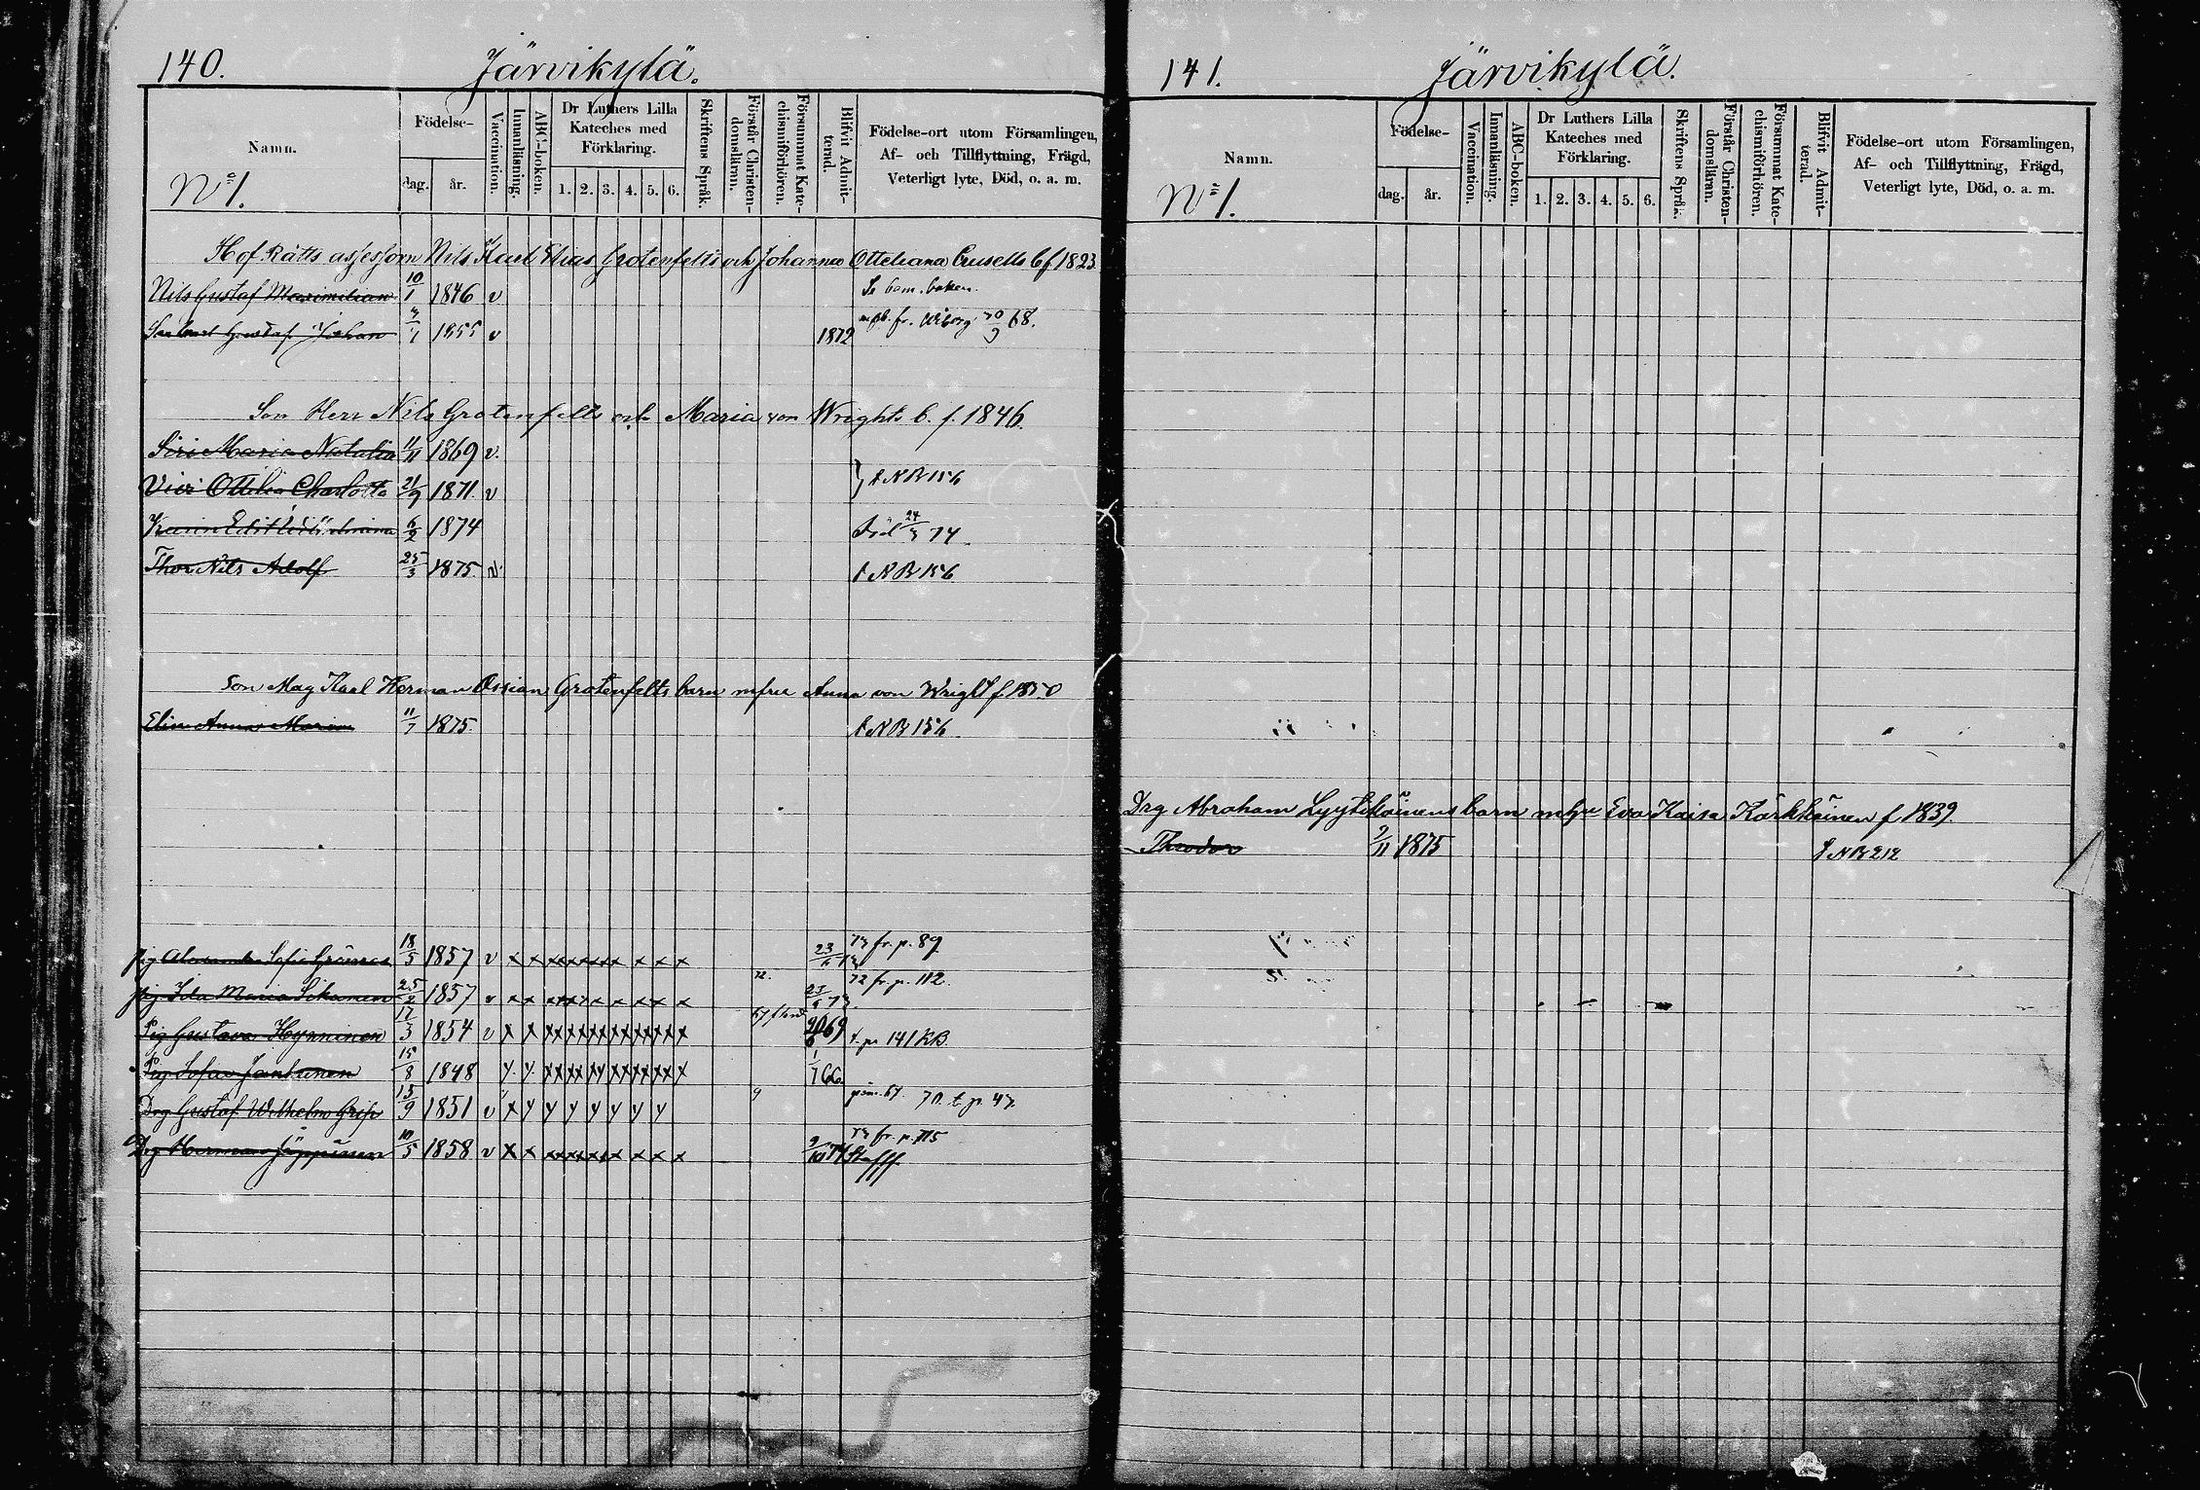 140. Järvikylä.
Namn. Födelse- dag. år. Vaccination. Innanläsning. ABC-boken. Dr Luthers Lilla Kateches med Förklaring. 1. 2. 3. 4. 5. 6. Skriftens Språk. Förstår Christen-domsläran. Försummat Kate-chismiförhören. Blifvit Admit-terad. Födelse-ort utom Församlingen, Af- och Tillflyttning, Frägd, Veterligt lyte, Död, o. a. m.
N:1.
Hof Rätts assessorn Nils Karl Elias Grotenfelts och Johanna Otteliana Crusells b f 1823
Nils Gustaf Maximilian 10/1 1846 v Se barn.boken.
Gustaf Johan 1855 v 1872 fr. Wiborg 68.
Son Herr Nils Grotenfelts och Maria von Wrights b. f. 1846.
Siri Maria Natalia 11/11 1869 v.
Ottilia Charlotta 21/9 1871. v } t NB 156
Karin Edit 6/2 1874 Död 24/3 74
Thor Nils Adolf 25/3 1875. v. t NB 156
Son Mag Karl Herman Ossian Grotenfelts barn m fru Anna von Wright f 1850
Elin Anna Maria 11/7 1875. t NB 156
Pig Sofia 18/5 1857 v x x xxxxxxx x x x x 23/6 73 73 fr. p. 89
72. 72 fr. p. 112.
Pig Ida Maria 25/2 1857 v x x x x x x x x x x 73
Pig Gustava Hynninen 17/3 1854 v x x xxxxxxxxxxxxx 69 t. p. 141 KB.
Pig Sofia Jantunen 15/8 1848 y. y. xxxxxxxxxxxx 66
Drg Gustaf Wilhelm Grip 13/9 1851 v x y y y y y y y 9 67. 70. t. p. 47.
Drg Herman Jäppinen 10/5 1858 v x x xxxxxx x x x x 74 73 fr. p. 115
141. Järvikylä.
Namn. Födelse- dag. år. Vaccination. Innanläsning. ABC-boken. Dr Luthers Lilla Kateches med Förklaring. 1. 2. 3. 4. 5. 6. Skriftens Språk. Förstår Christen-domsläran. Försummat Kate-chismiförhören. Blifvit Admit-terad. Födelse-ort utom Församlingen, Af- och Tillflyttning, Frägd, Veterligt lyte, Död, o. a. m.
N:1.
Drg Abraham Lyytikäinens barn m hu Eva Kaisa Kärkkäinen f 1839.
Theodor 9/11 1875 t NB 212